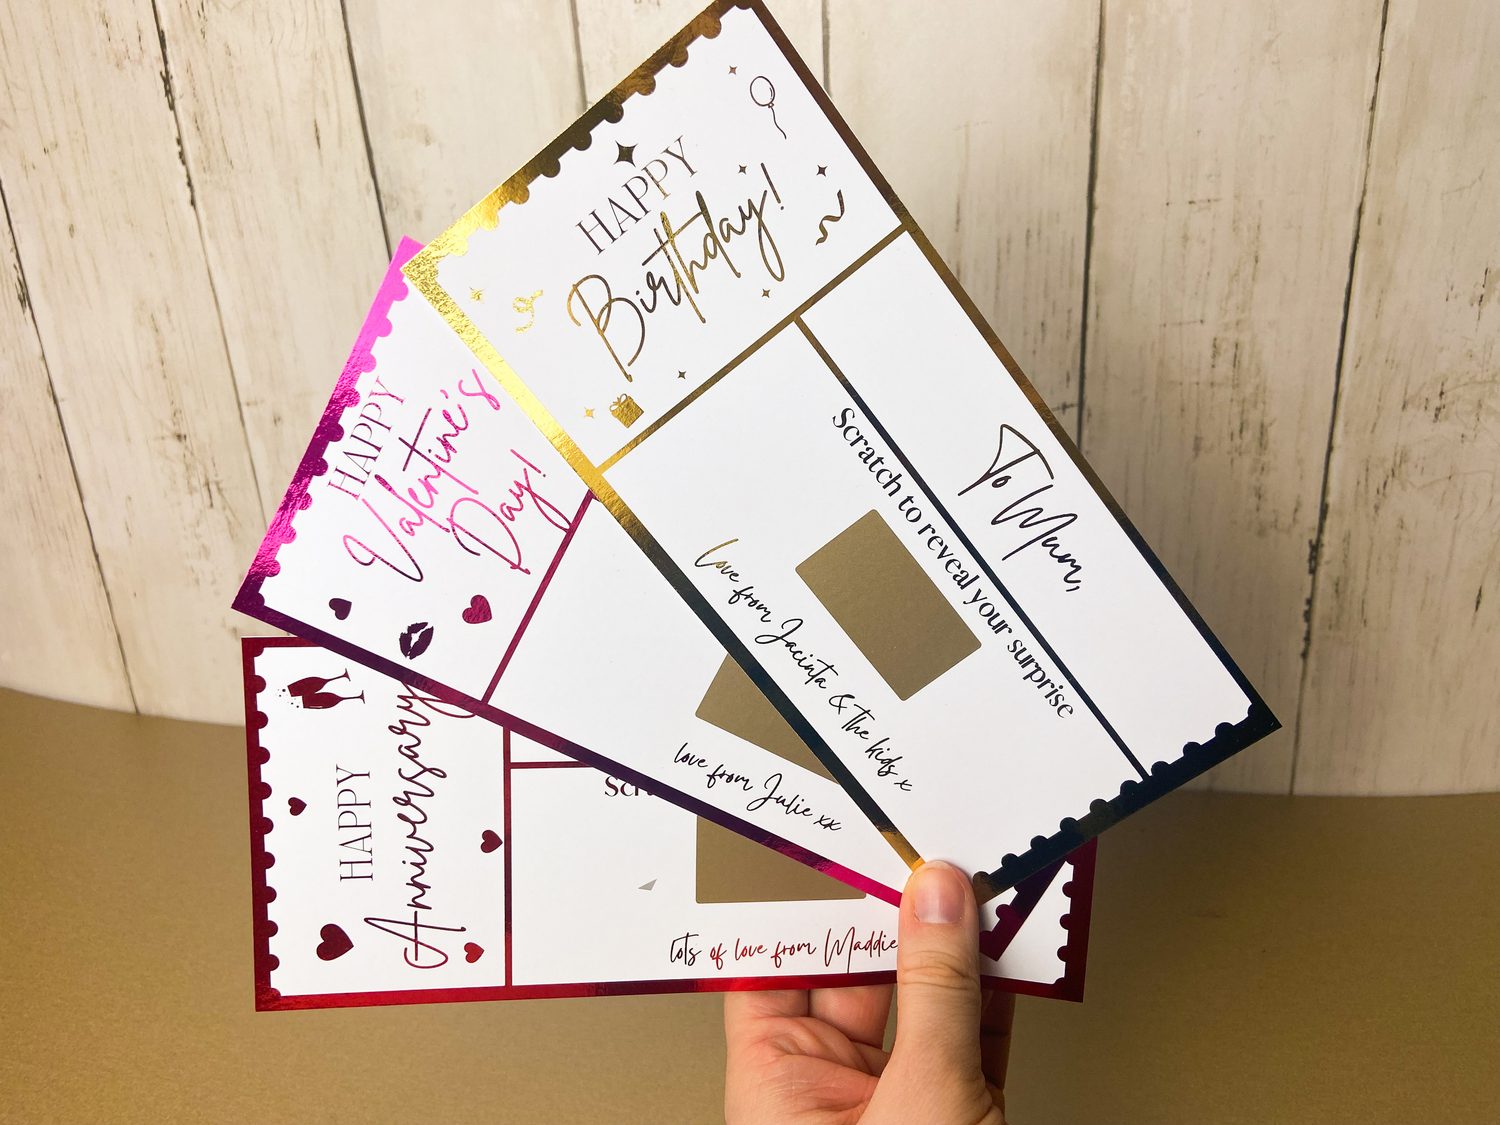 HAPPY
Birthday!
To Mum,
Scratch to reveal your surprise
love from Jacinta & the kids x
HAPPY
Valentine's
Day!
love from Julie xx
HAPPY
Anniversary
lots of love from Maddie